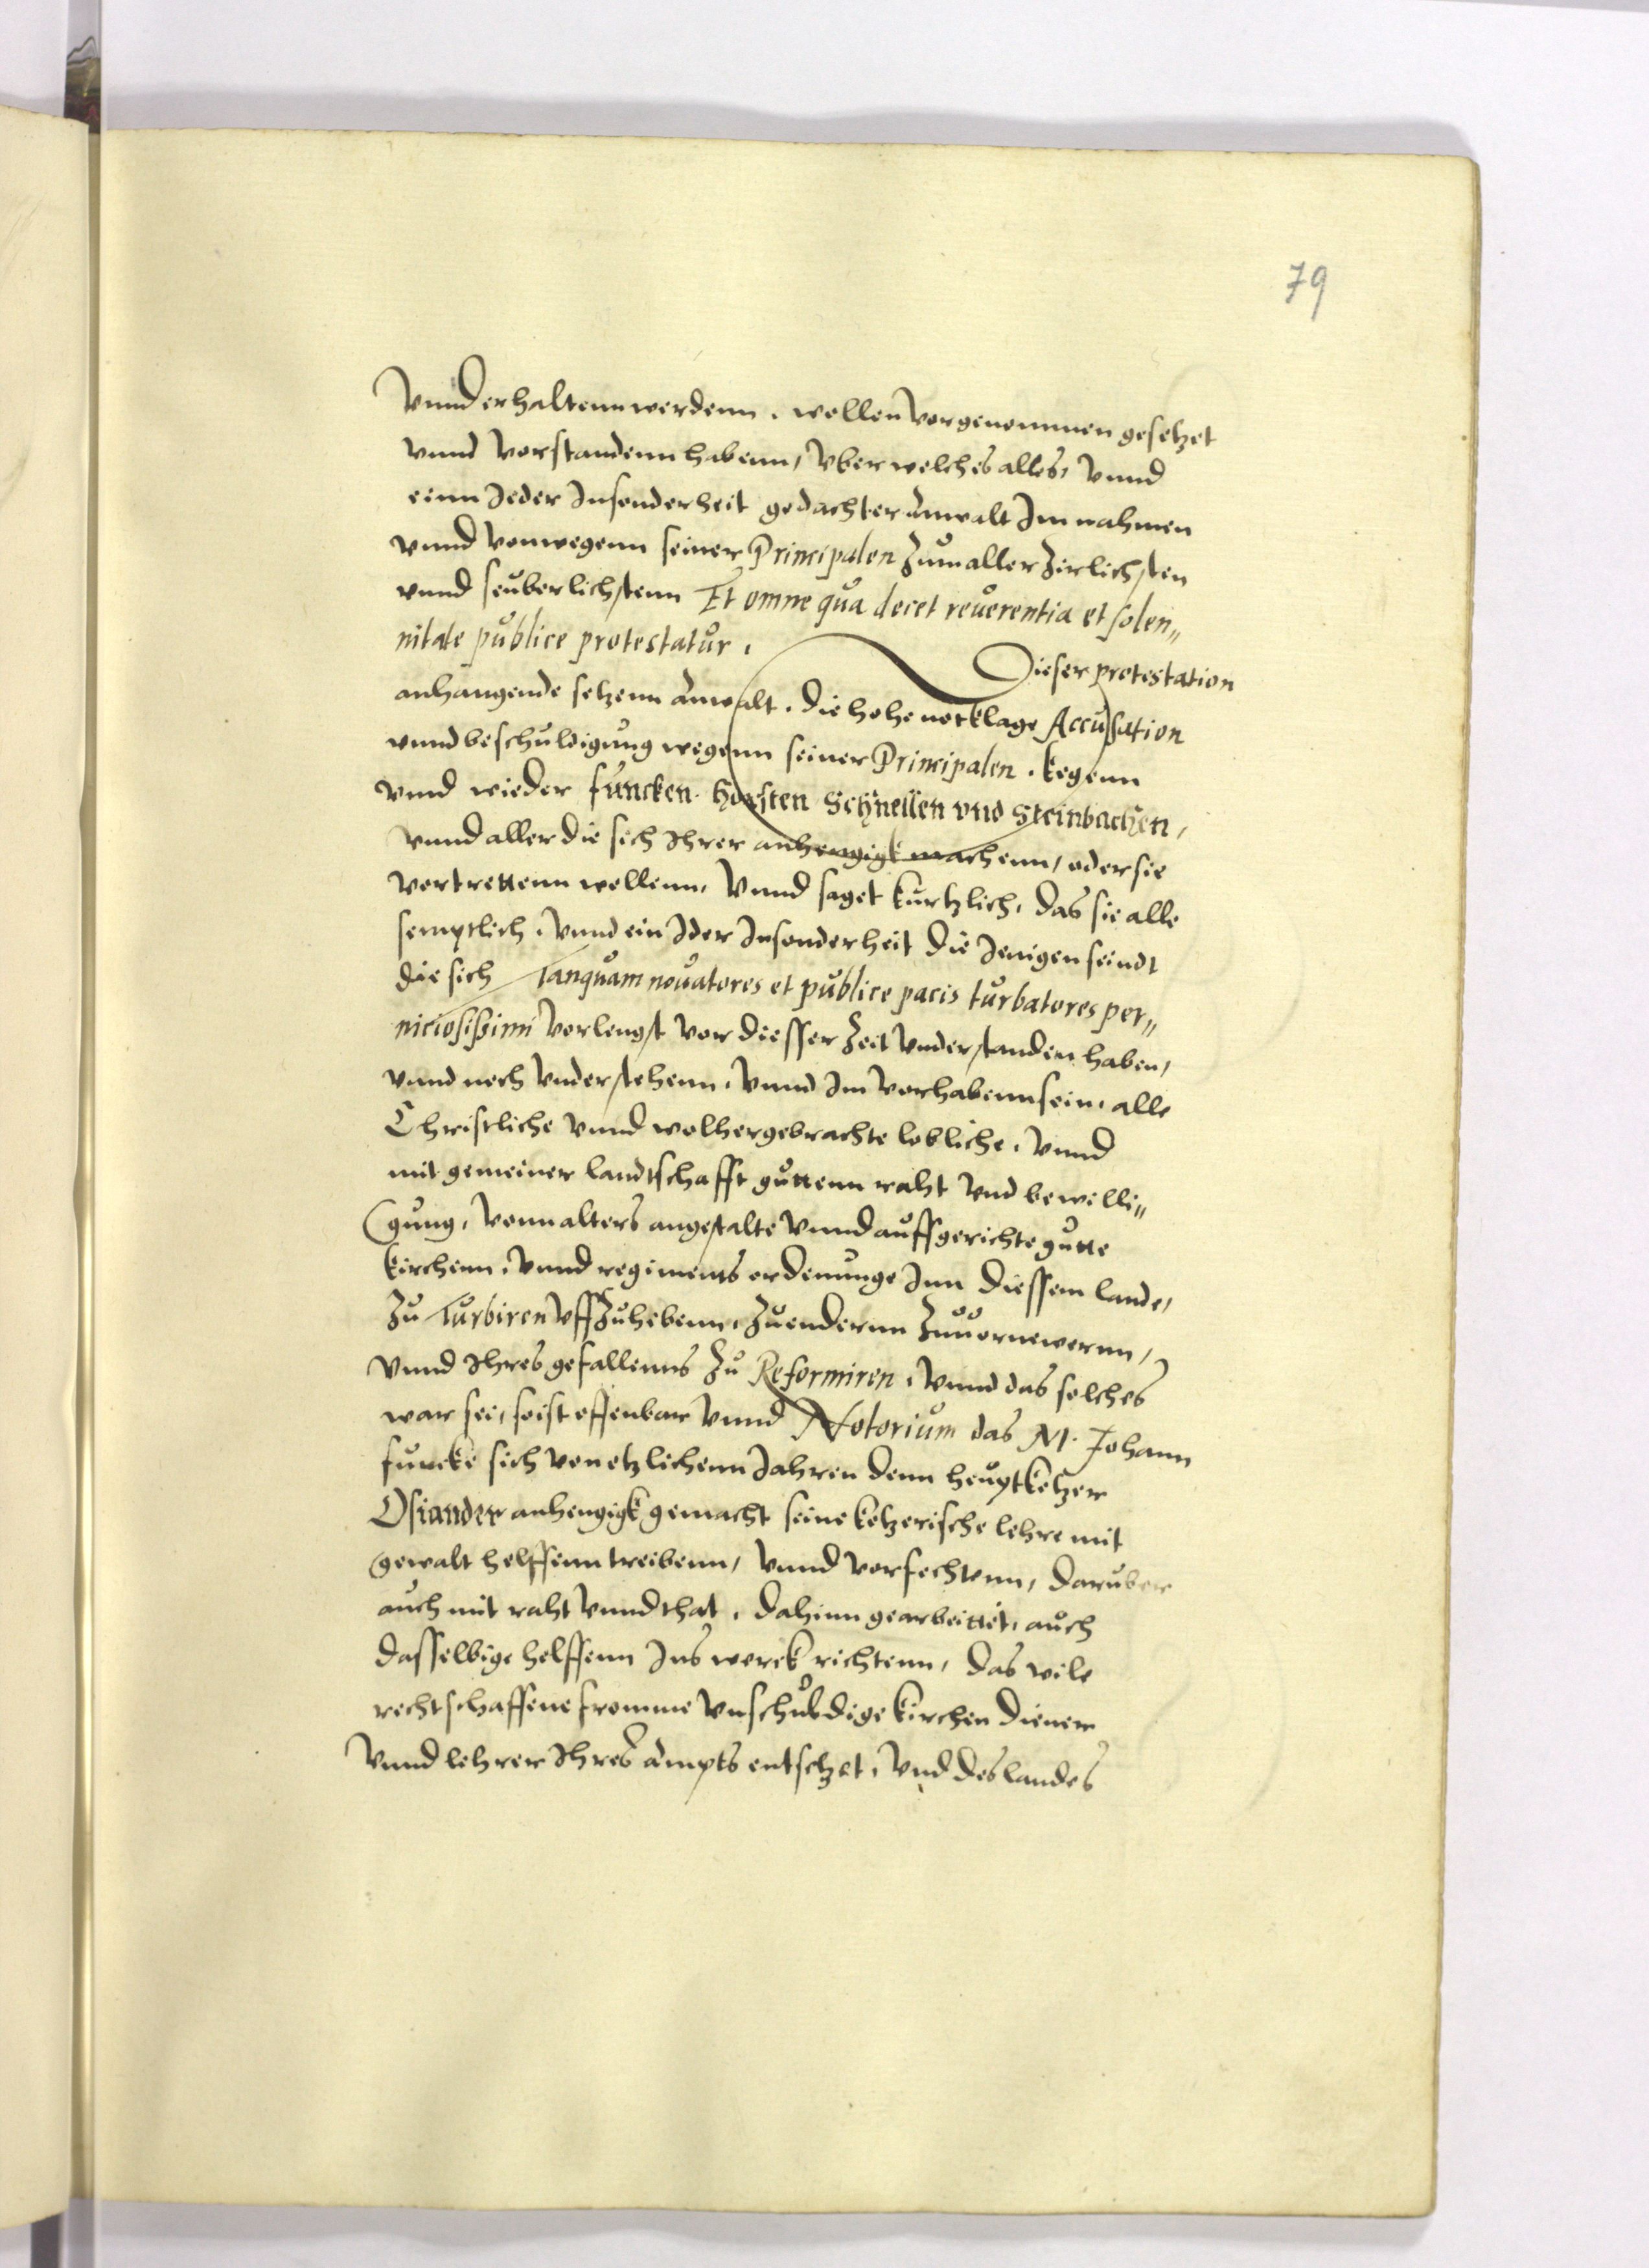 79
Vnnd erhaltenn werdenn . wollen Vorgenommen gesetzet
vnnd Vorstandenn habenn, Vber welches alles, Vnnd
einn Jeder Insonderheit gedachter Anwalt Im nahmen
vnnd Vonwegenn seiner Principalen Zum aller Zirlichsten
vnnd seuberlichstenn Et omne qua decet reuerentia et solen„
nitate publice protestatur .
Dieser protestation
anhangende setzenn Anwalt . die hohe notklage Accusation
vnnd beschuldigung wegenn seiner Principalen . kegenn
vnnd wieder Funcken. Horsten Schnellen vnd Steinbachen,
vnnd aller die sich Ihrer anhengigk machenn, oder sie
vortrettenn wollenn, Vnnd saget kurtzlich, das sie alle
semptlich . Vnnd ein Ider Insonderheit die Jenigen seindt
die sich Tanquam nouatores et publice pacis turbatores per„
niciosißimi Vorlengst vor diesser Zeit Vnderstanden haben,
vnnd noch Vnderstehenn . Vnnd Im Vorhabenn sein, alle
Christliche Vnnd wolhergebrachte lobliche . Vnnd
mit gemeiner landtschafft guttenn raht Vnd bewilli„
gung, Vonn alters angestalte Vnnd auffgerichte gutte
kirchenn . Vnnd regiments ordenunge Inn diessem lande,
Zu Turbiren VffZuhebenn, Zuendernn Zuuornewernn,
Vnnd Ihres gefallenns Zu Reformiren . Vnnd das solches
war sei, so ist offenbar Vnnd Notorium das M. Johann
Funcke sich von etzlichenn Jahren denn heuptketzer
Osiander anhengigk gemacht seine ketzerische lehre mit
gewalt helffenn treibenn, Vnnd Vorfechtenn, daruber
auch mit raht Vnnd that . dahinn gearbeittet, auch
dasselbige helffenn Ins werck richtenn, das viele
rechtschaffene fromme Vnschuldige kirchen diener
Vnnd lehrer Ihres Ampts entsetzet, Vnd des landes